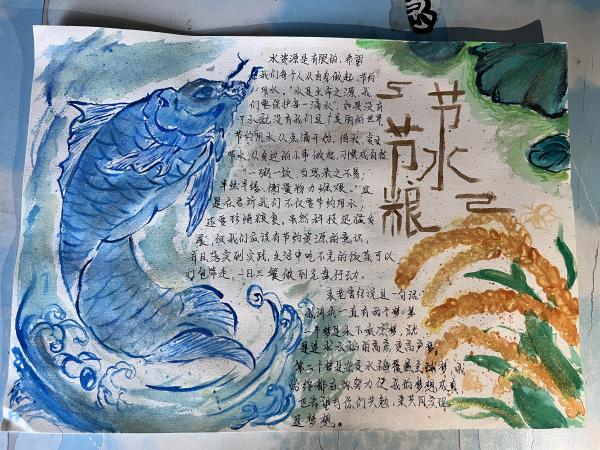 节水
与节粮
水资源是有限的,希望
我们每个人从自身做起,节约
用水,“水是生命之源,我
们要保护每一滴水”,如果没有
水就没有我们这个美丽的世界
节约用水从点滴开始,
节水从身边的小事做起,习惯成自然
“一粥一饭,当思来之不易;
半丝半缕,恒念物力维艰。”这
是在告诉我们不仅要节约用水,
还要珍惜粮食,虽然科技迅猛发
展,但我们应该有节约资源的意识,
并且落实到实践,生活中吃不完的饭菜可以
打包带走,一日三餐做到光盘行动。
袁老曾经说过一句话
我一直有两个梦:第
一个梦是禾下乘凉梦,就
是追求水稻的高产更高产梦;
第二个梦是杂交水稻覆盖全球梦,我
始终都在努力使我的梦想成真
也希望与你们共勉,来共同实现
这梦想。